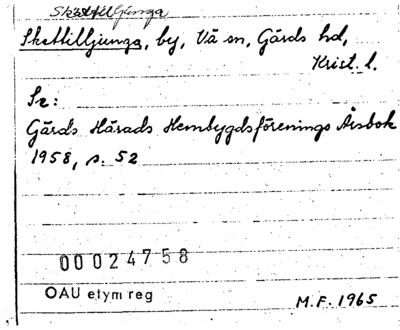 Skättilljunga
Skettilljunga, by, Vä sn, Gärds hd,
Krist. l.
Se:
Gärds Härads Hembygdsförenings Årsbok
1958, s. 52
00024758
OAU etym reg
M.F. 1965